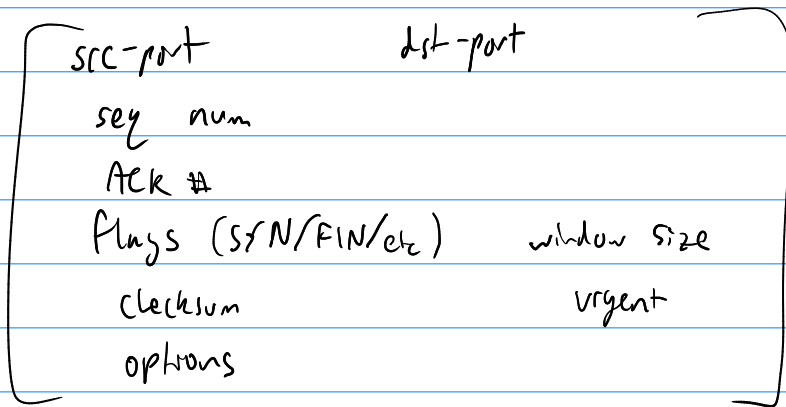 src-port dst-port
seq num
Ack #
flags (SYN/FIN/etc) window size
checksum urgent
options